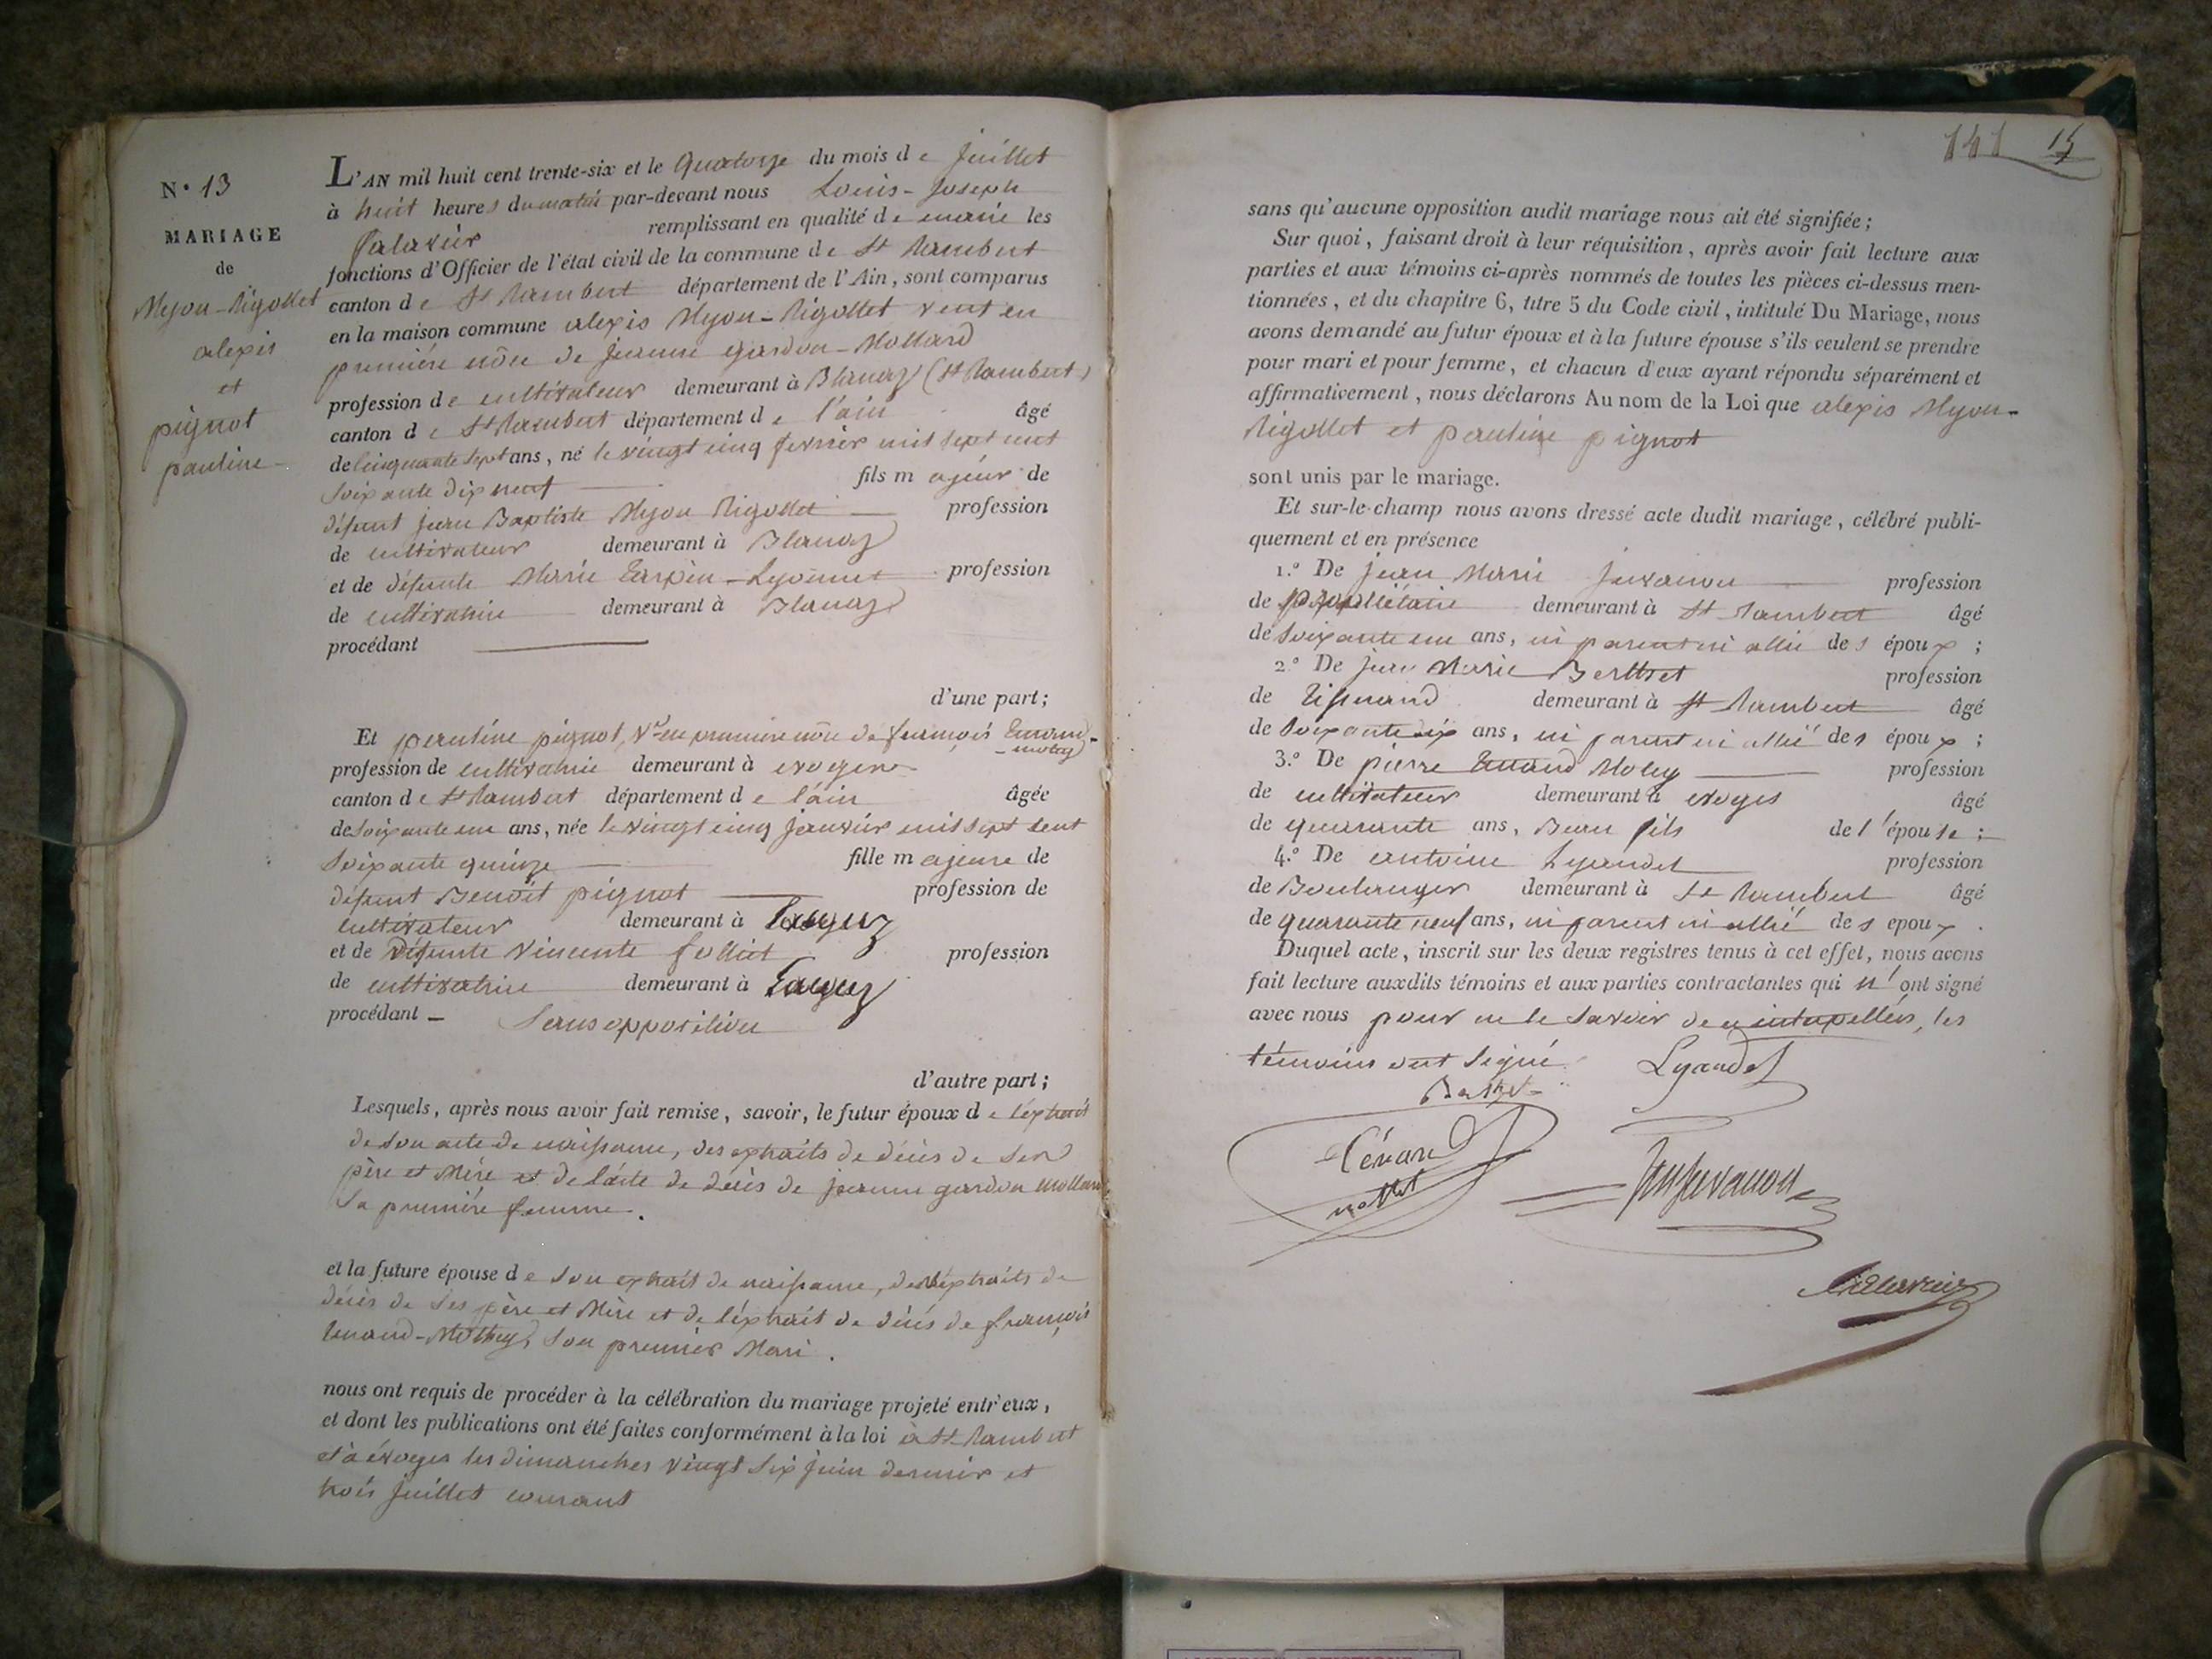 N.º 13
MARIAGE
de
Myon-Rigollet
alexis
et
pignot
pauline
L'AN mil huit cent trente-six et le Quatorze du mois de Juillet
à huit heures du matin par-devant nous Louis-Joseph
remplissant en qualité de maire les
fonctions d'Officier de l'état civil de la commune de St Rambert
canton de St Rambert département de l'Ain, sont comparus
en la maison commune alexis Myon-Rigollet veuf en
première nôce de jeanne gardon-Mollard
profession de cultivateur demeurant à Blanaz (St Rambert)
canton de St Rambert département de l'ain âgé
de cinquante sept ans, né le vingt cinq février mil sept cent
soixante dix neuf fils majeur de
défunt jean Baptiste Myon Rigollet profession
de cultivateur demeurant à Blanaz
et de défunte Marie Tarpin-Lyonnet profession
de cultivatrice demeurant à Blanaz
procédant
d'une part;
Et pauline pignot, Ve en première nôce de françois Tenand-
motey
profession de cultivatrice demeurant à evoges
canton de St Rambert département de l'ain âgée
de soixante un ans, née le vingt cinq janvier mil sept cent
soixante quinze fille majeure de
défunt Benoît pignot profession de
cultivateur demeurant à
et de défunte Vincente folliet profession
de cultivatrice demeurant à
procédant - Sans opposition
d'autre part;
Lesquels, après nous avoir fait remise, savoir, le futur époux de l'extrait
de son acte de naissance, des extraits de décès de ses
père et Mère et de l'acte de décès de jeanne gardon mollard
sa première femme.
et la future épouse de son extrait de naissance, des extraits de
décès de ses père et Mère et de l'extrait de décès de françois
tenand-Mothey, son premier Mari.
nous ont requis de procéder à la célébration du mariage projeté entr'eux,
et dont les publications ont été faites conformément à la loi à St Rambert
et à évoges les dimanches vingt six juin dernier et
trois juillet courant
141 15
sans qu'aucune opposition audit mariage nous ait été signifiée;
Sur quoi, faisant droit à leur réquisition, après avoir fait lecture aux
parties et aux témoins ci-après nommés de toutes les pièces ci-dessus men-
tionnées, et du chapitre 6, titre 5 du Code civil, intitulé Du Mariage, nous
avons demandé au futur époux et à la future épouse s'ils veulent se prendre
pour mari et pour femme, et chacun d'eux ayant répondu séparément et
affirmativement, nous déclarons Au nom de la Loi que alexis Myon-
Rigollet et pauline pignot
sont unis par le mariage.
Et sur-le-champ nous avons dressé acte dudit mariage, célébré publi-
quement et en présence
1.º De jean Marie Juvanon profession
de propriétaire demeurant à St Rambert âgé
de soixante un ans, ni parent ni allié des époux;
2.º De jean Marie Berthet profession
de Tisserand demeurant à St Rambert âgé
de soixante six ans, ni parent ni allié des époux;
3.º De pierre Tenand Motey profession
de cultivateur demeurant à evoges âgé
de quarante ans, Beau fils de l'épouse;
4.º De antoine Lyaudet profession
de Boulanger demeurant à St Rambert âgé
de quarante neuf ans, ni parent ni allié des époux.
Duquel acte, inscrit sur les deux registres tenus à cet effet, nous avons
fait lecture auxdits témoins et aux parties contractantes qui n'ont signé
avec nous pour ne le savoir de ce interpellés, les
témoins ont signé. Lyaudet
Berthet
Ténand
mottet
Juvanon